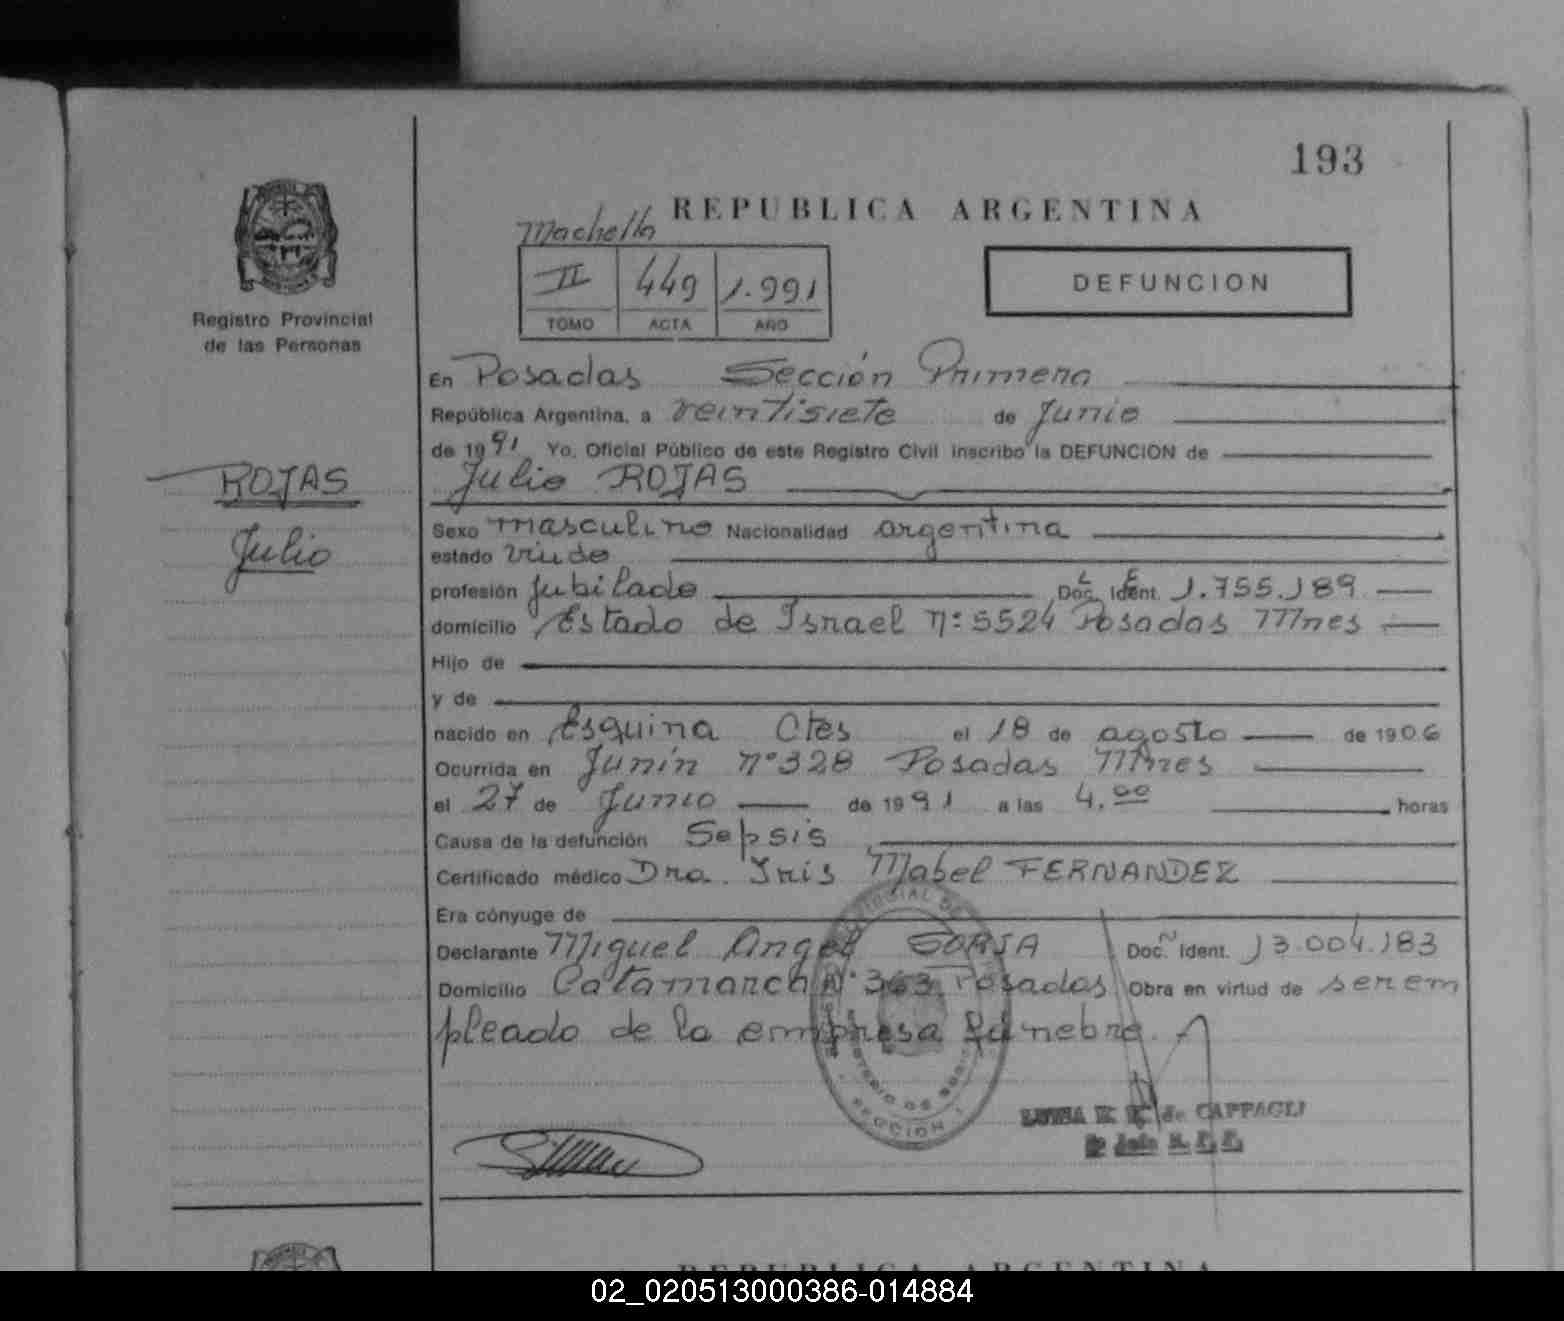 193
REPUBLICA ARGENTINA
Machella
II 449 1.991
TOMO ACTA AÑO
DEFUNCION
Registro Provincial
de las Personas
ROJAS
Julio
En Posadas Sección Primera
República Argentina, a veintisiete de Junio
de 1991 Yo, Oficial Público de este Registro Civil inscribo la DEFUNCION de
Julio ROJAS
Sexo masculino Nacionalidad argentina
estado viudo
profesión Jubilado Doc. Ident. L E 1.755.189
domicilio Estado de Israel nº 5524 Posadas Mnes
Hijo de
y de
nacido en Esquina Ctes el 18 de agosto de 1906
Ocurrida en Junín nº 328 Posadas Mnes
el 27 de Junio de 1991 a las 4,00 horas
Causa de la defunción Sepsis
Certificado médico Dra. Iris Mabel FERNANDEZ
Era cónyuge de
Declarante Miguel Angel SORIA Doc. Ident. 13.004.183
Domicilio Catamarca Nº 363 Posadas Obra en virtud de ser em
pleado de la empresa fúnebre.
de CAPPAGLI
REPUBLICA ARGENTINA
02_020513000386-014884